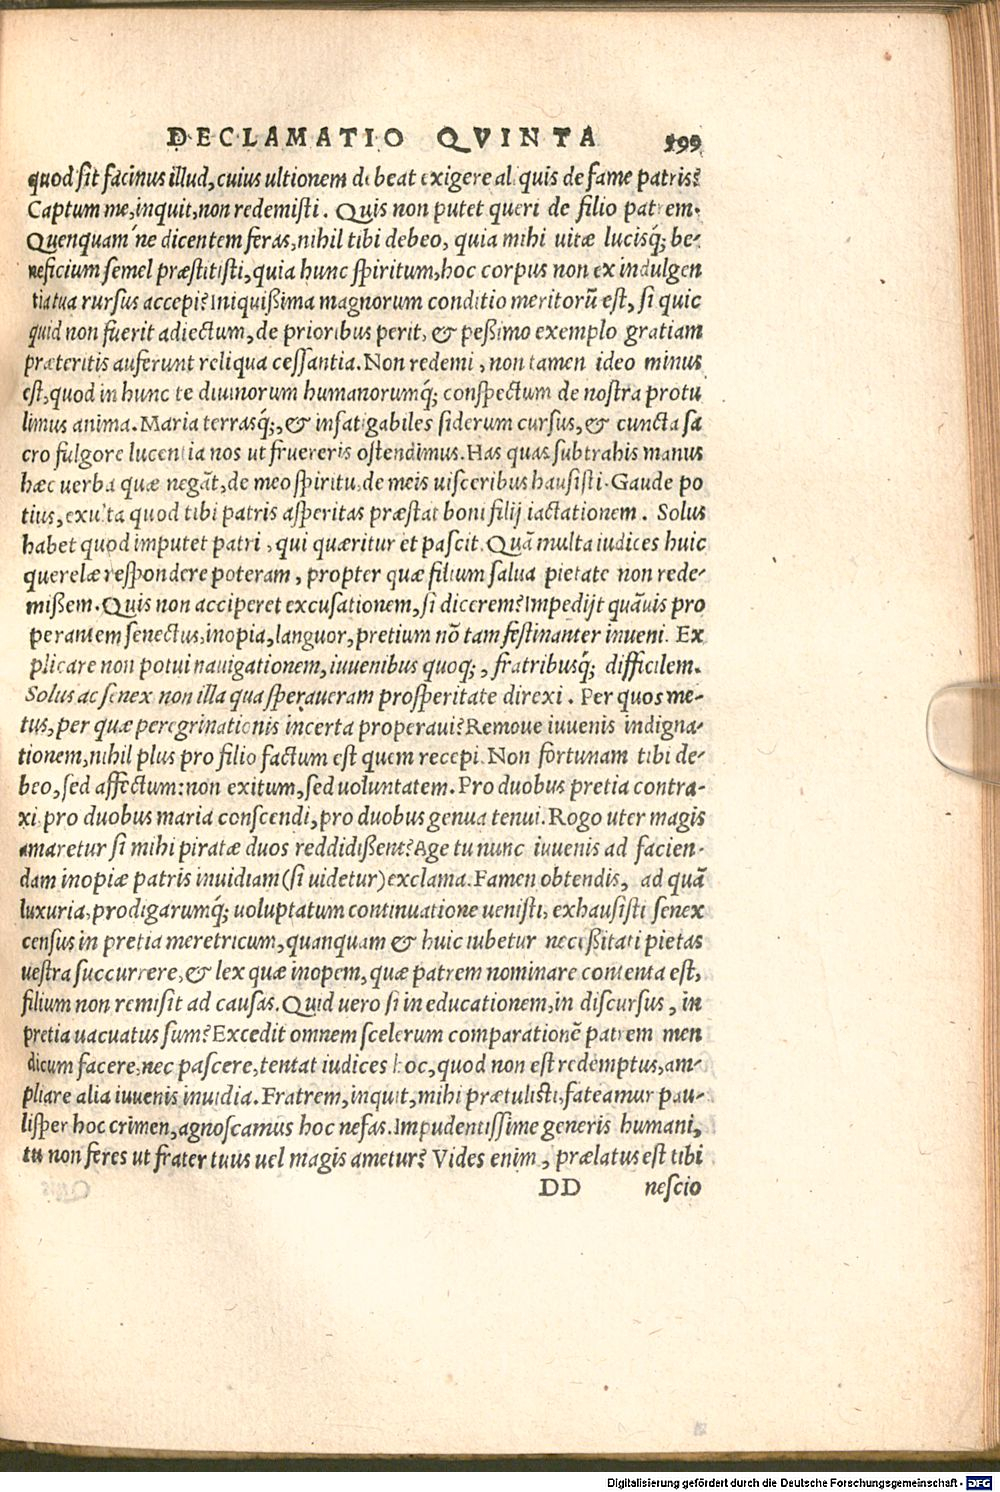 DECLAMATIO QVINTA 199
quod sit facinus illud, cuius ultionem debeat exigere aliquis de fame patris?
Captum me, inquit, non redemisti. Quis non putet queri de filio patrem.
Quenquam'ne dicentem feras, nihil tibi debeo, quia mihi uitæ lucisq́; be-
neficium semel præstitisti, quia hunc spiritum, hoc corpus non ex indulgen
tia tua rursus accepi? Iniquißima magnorum conditio meritorũ est, si quic
quid non fuerit adiectum, de prioribus perit, & peßimo exemplo gratiam
præteritis auferunt reliqua cessantia. Non redemi, non tamen ideo minus
est, quod in hunc te diuinorum humanorumq́; conspectum de nostra protu
limus anima. Maria terrasq́;, & infatigabiles siderum cursus, & cuncta sa
cro fulgore lucentia nos ut fruereris ostendimus. Has quas subtrahis manus
hæc uerba quæ negãt, de meo spiritu, de meis uisceribus hausisti. Gaude po
tius, exulta quod tibi patris asperitas præstat boni filij iactationem. Solus
habet quod imputet patri, qui quæritur et pascit. Quã multa iudices huic
querelæ respondere poteram, propter quæ filium salua pietate non rede-
mißem. Quis non acciperet excusationem, si dicerem? Impedijt quãuis pro
perantem senectus, inopia, languor, pretium nõ tam festinanter inueni. Ex
plicare non potui nauigationem, iuuenibus quoq;, fratribusq́; difficilem.
Solus ac senex non illa qua speraueram prosperitate direxi. Per quos me-
tus, per quæ peregrinationis incerta properaui? Remoue iuuenis indigna-
tionem, nihil plus pro filio factum est quem recepi. Non fortunam tibi de-
beo, sed affectum: non exitum, sed uoluntatem. Pro duobus pretia contra-
xi, pro duobus maria conscendi, pro duobus genua tenui. Rogo uter magis
amaretur si mihi piratæ duos reddidißent? Age tu nunc iuuenis ad facien-
dam inopiæ patris inuidiam (si uidetur) exclama. Famen obtendis, ad quã
luxuria, prodigarumq́; uoluptatum continuatione uenisti, exhausisti senex
census in pretia meretricum, quanquam & huic iubetur neceßitati pietas
uestra succurrere, & lex quæ inopem, quæ patrem nominare contenta est,
filium non remisit ad causas. Quid uero si in educationem, in discursus, in
pretia uacuatus sum? Excedit omnem scelerum comparationẽ patrem men
dicum facere, nec pascere, tentat iudices hoc, quod non est redemptus, am-
pliare alia iuuenis inuidia. Fratrem, inquit, mihi prætulisti, fateamur pau-
lisper hoc crimen, agnoscamus hoc nefas. Impudentissime generis humani,
tu non feres ut frater tuus uel magis ametur? Vides enim, prælatus est tibi
DD nescio
Digitalisierung gefördert durch die Deutsche Forschungsgemeinschaft - DFG